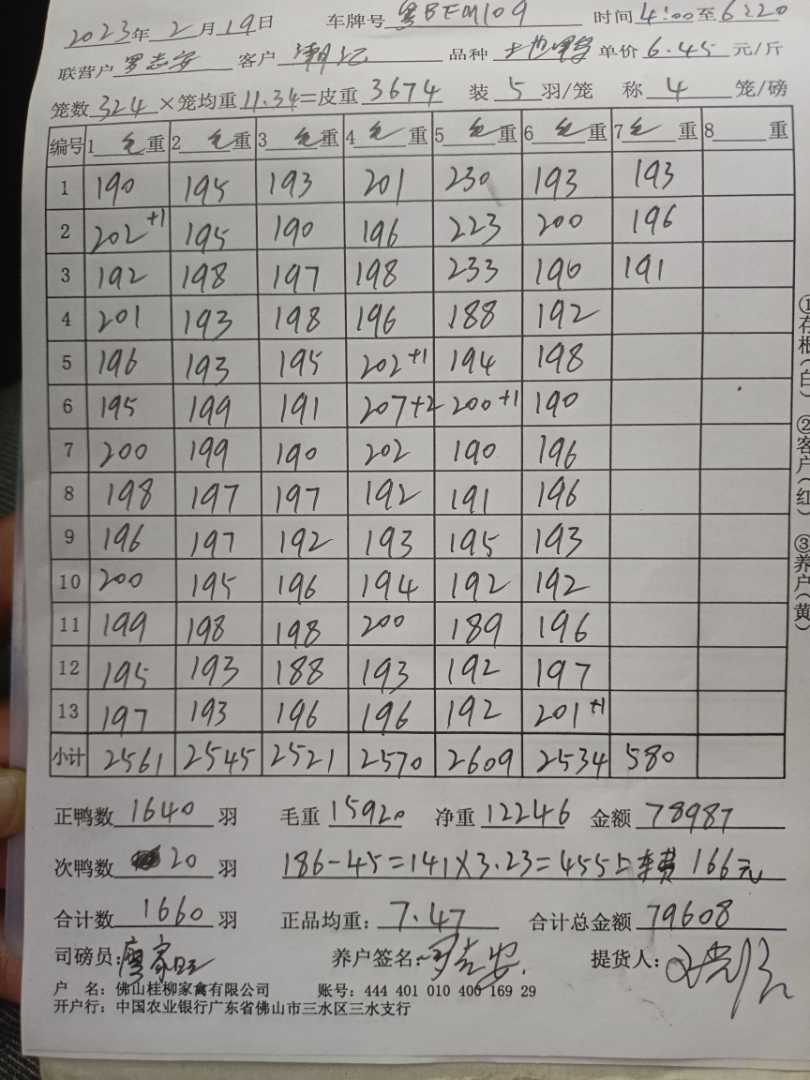 2023年 2 月 19 日 车牌号 粤BFM109 时间 4:00 至 6:20
联营户 罗志安 客户 潮记 品种 单价 6.45 元/斤
笼数 324 ×笼均重 11.34 =皮重 3674 装 5 羽/笼 称 4 笼/磅
编号 1 毛 重 2 毛 重 3 毛 重 4 毛 重 5 毛 重 6 毛 重 7 毛 重 8 重
1 190 195 193 201 230 193 193
2 202+1 195 190 196 223 200 196
3 192 198 197 198 233 190 191
4 201 193 198 196 188 192
5 196 193 195 202+1 194 198
6 195 199 191 207+2 200+1 190
7 200 199 190 202 190 196
8 198 197 197 192 191 196
9 196 197 192 193 195 193
10 200 195 196 194 192 192
11 199 198 198 200 189 196
12 195 193 188 193 192 197
13 197 193 196 196 192 201+1
小计 2561 2545 2521 2570 2609 2534 580
正鸭数 1640 羽 毛重 15920 净重 12246 金额 78987
次鸭数 20 羽 186-45=141×3.23=455 车费 166元
合计数 1660 羽 正品均重: 7.47 合计总金额 79608
司磅员: 廖家旺 养户签名: 罗志安 提货人:
户 名: 佛山桂柳家禽有限公司 账号: 444 401 010 400 169 29
开户行: 中国农业银行广东省佛山市三水区三水支行
①存根(白) ②客户(红) ③养户(黄)